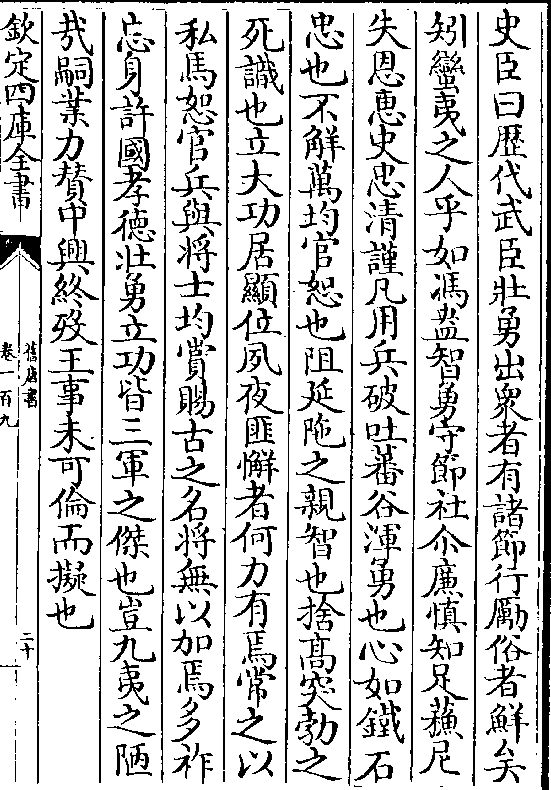 史臣曰歴代武臣壯勇出衆者有諸節行勵俗者鮮矣
矧蠻夷之人乎如馮盎智勇守節社尒廉慎知足蘓尼
失恩恵史忠清謹凡用兵破吐蕃谷渾勇也心如鐵石
忠也不解萬均官恕也阻延陁之親智也捨高突勃之
死識也立大功居顯位夙夜匪懈者何力有焉常之以
私馬恕官兵與將士均賞賜古之名將無以加焉多祚
忘身許國孝德壯勇立功皆三軍之傑也豈九夷之陋
㦲嗣業力賛中興終殁王事未可倫而擬也
欽定四庫全書
舊唐書
卷一百九
二十